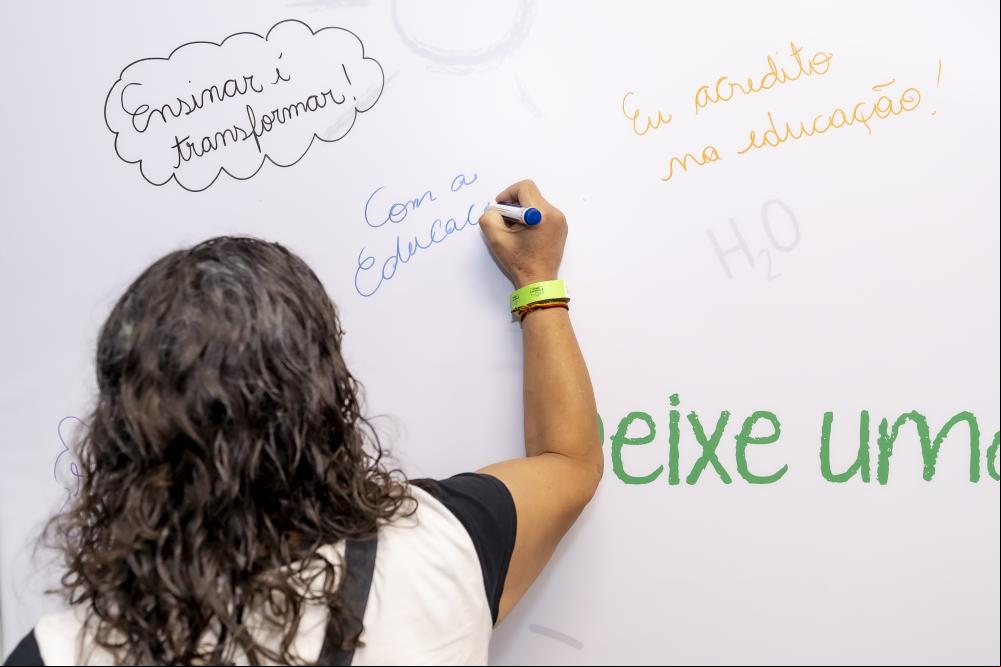 Ensinar é
transformar!
Eu acredito
na educação!
Com a
Educaç
H2O
eixe uma